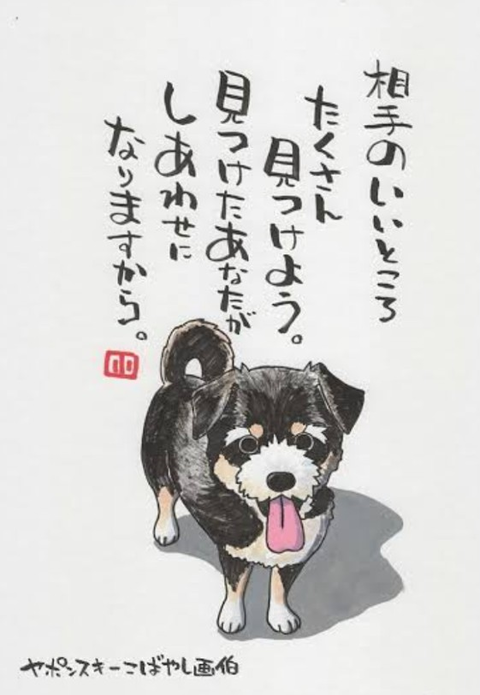 相手のいいところ
たくさん
見つけよう。
見つけたあなたが
しあわせに
なりますから。
ヤポンスキーこばやし画伯